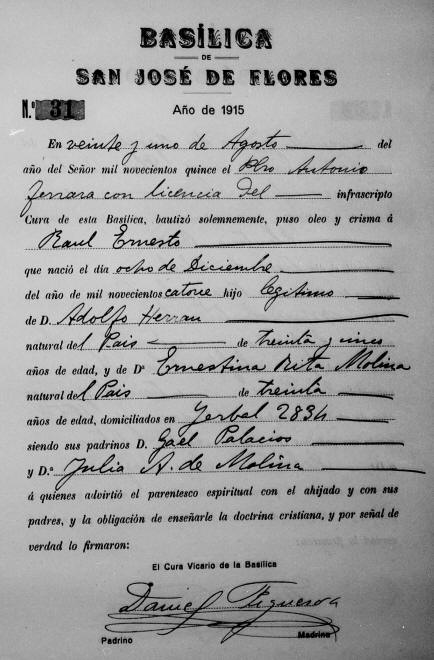 BASÍLICA
DE
SAN JOSÉ DE FLORES
N.º 31 Año de 1915
En veinte y uno de Agosto del
año del Señor mil novecientos quince el Pbro Antonio
Ferrara con licencia del infrascripto
Cura de esta Basílica, bautizó solemnemente, puso oleo y crisma á
Raul Ernesto
que nació el día ocho de Diciembre
del año de mil novecientos catorce hijo legitimo
de D. Adolfo Herran
natural del Pais de treinta y cinco
años de edad, y de Dª Ernestina Rita Molina
natural del Pais de treinta
años de edad, domiciliados en Yerbal 2834
siendo sus padrinos D. Gael Palacios
y D.ª Julia A. de Molina
á quienes advirtió el parentesco espiritual con el ahijado y con sus
padres, y la obligación de enseñarle la doctrina cristiana, y por señal de
verdad lo firmaron:
El Cura Vicario de la Basílica
Daniel Figueroa
Padrino Madrina